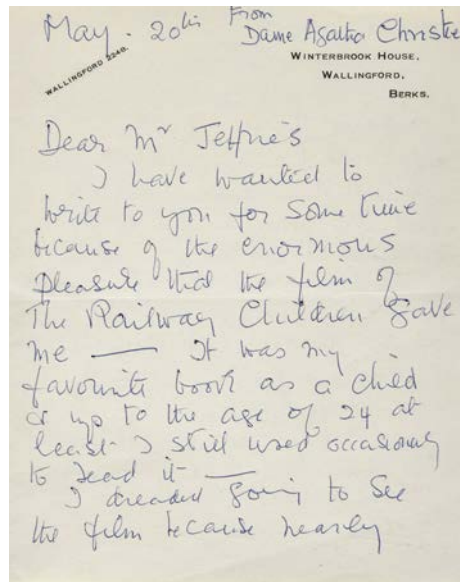 May. 20th From
Dame Agatha Christie
WALLINGFORD 2248.
WINTERBROOK HOUSE,
WALLINGFORD,
BERKS.
Dear Mr Jeffries
I have wanted to
write to you for some time
because of the enormous
pleasure that the film of
The Railway Children gave
me — It was my
favourite book as a child
or up to the age of 24 at
least I still used occasionally
to read it —
I dreaded going to see
the film because nearly